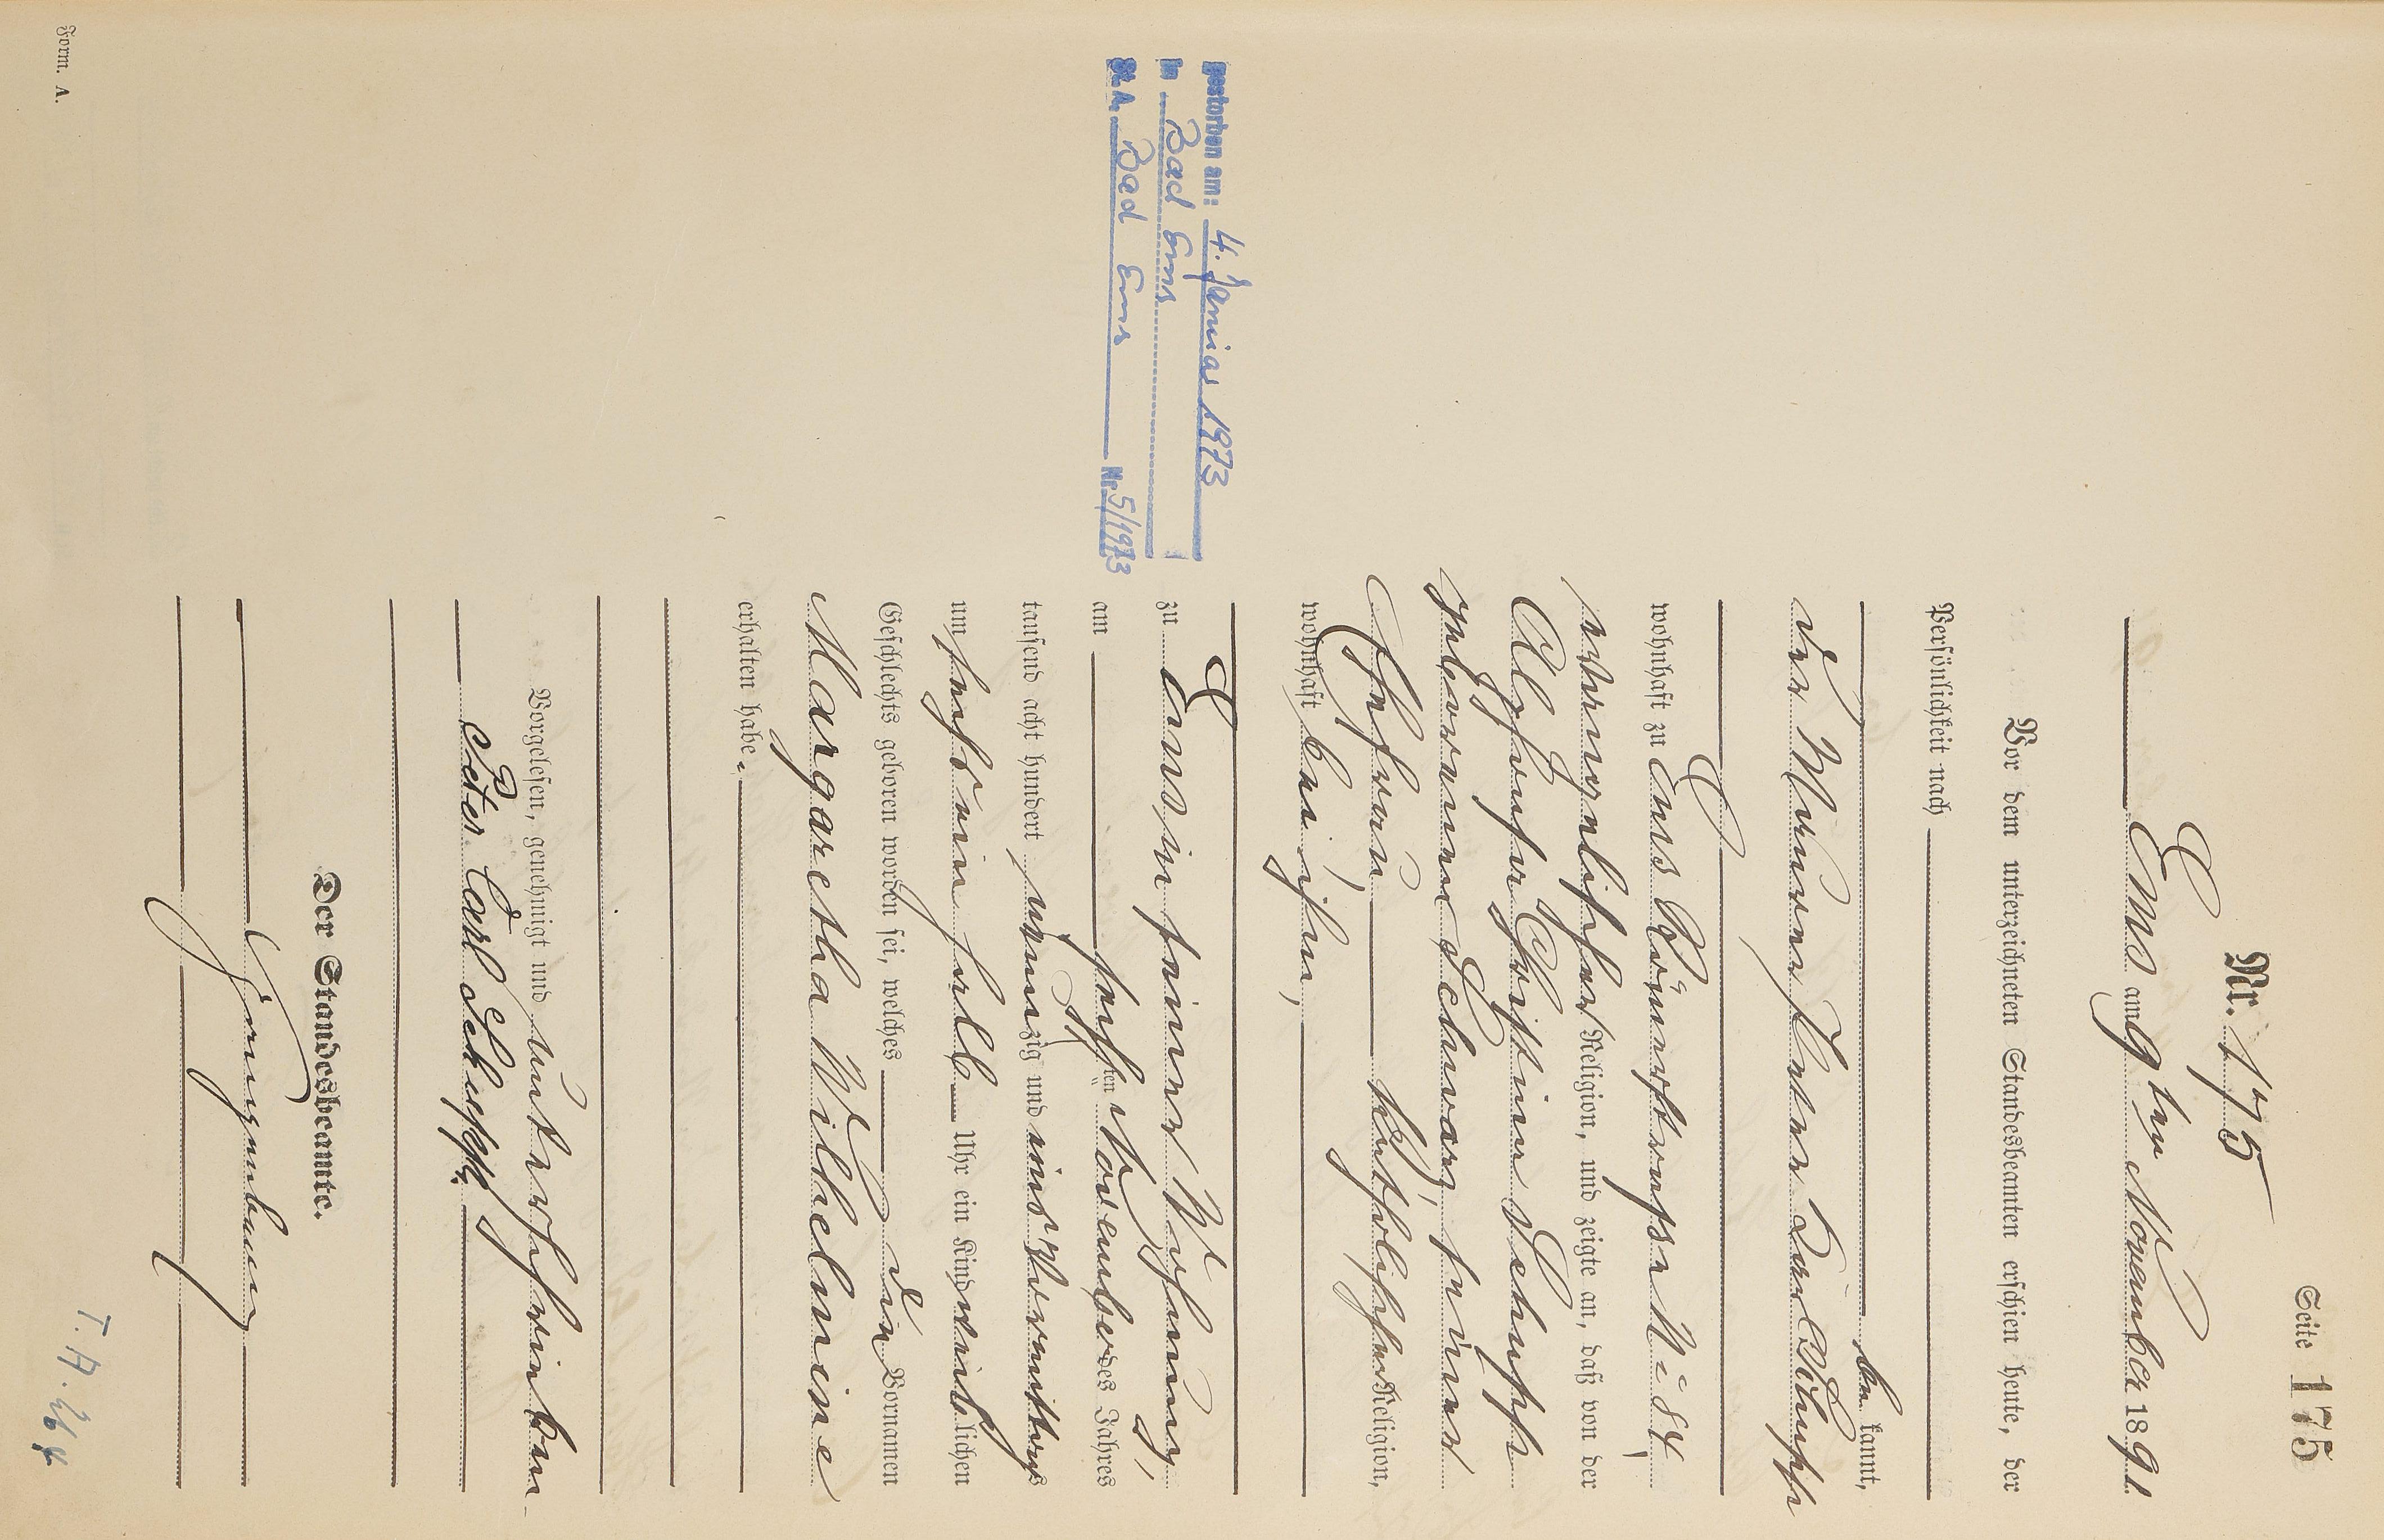 Seite 175
Nr. 175
Ems am 9ten November 1891.
Vor dem unterzeichneten Standesbeamten erschien heute, der
Persönlichkeit nach
be kannt,
der Maurer Peter Carl Schupp
wohnhaft zu Ems Römerstrasse N= 84
evangelischer Religion, und zeigte an, daß von der
Christine Schupp
geborenen Schwarz, seiner
Ehefrau, katholischer Religion,
wohnhaft bei ihm,
zu Ems in seiner Wohnung,
am sechsten November des Jahres
tausend acht hundert neunzig und eins Vormittags
um sechs ein halb Uhr ein Kind weiblichen
Geschlechts geboren worden sei, welches die Vornamen
Margaretha Wilhelmine
erhalten habe.
Vorgelesen, genehmigt und unterschrieben
Peter Carl Schupp.
Der Standesbeamte.
gestorben am: 4. Januar 1973
in Bad Ems
St. A. Bad Ems Nr. 5/1973
Form. A.